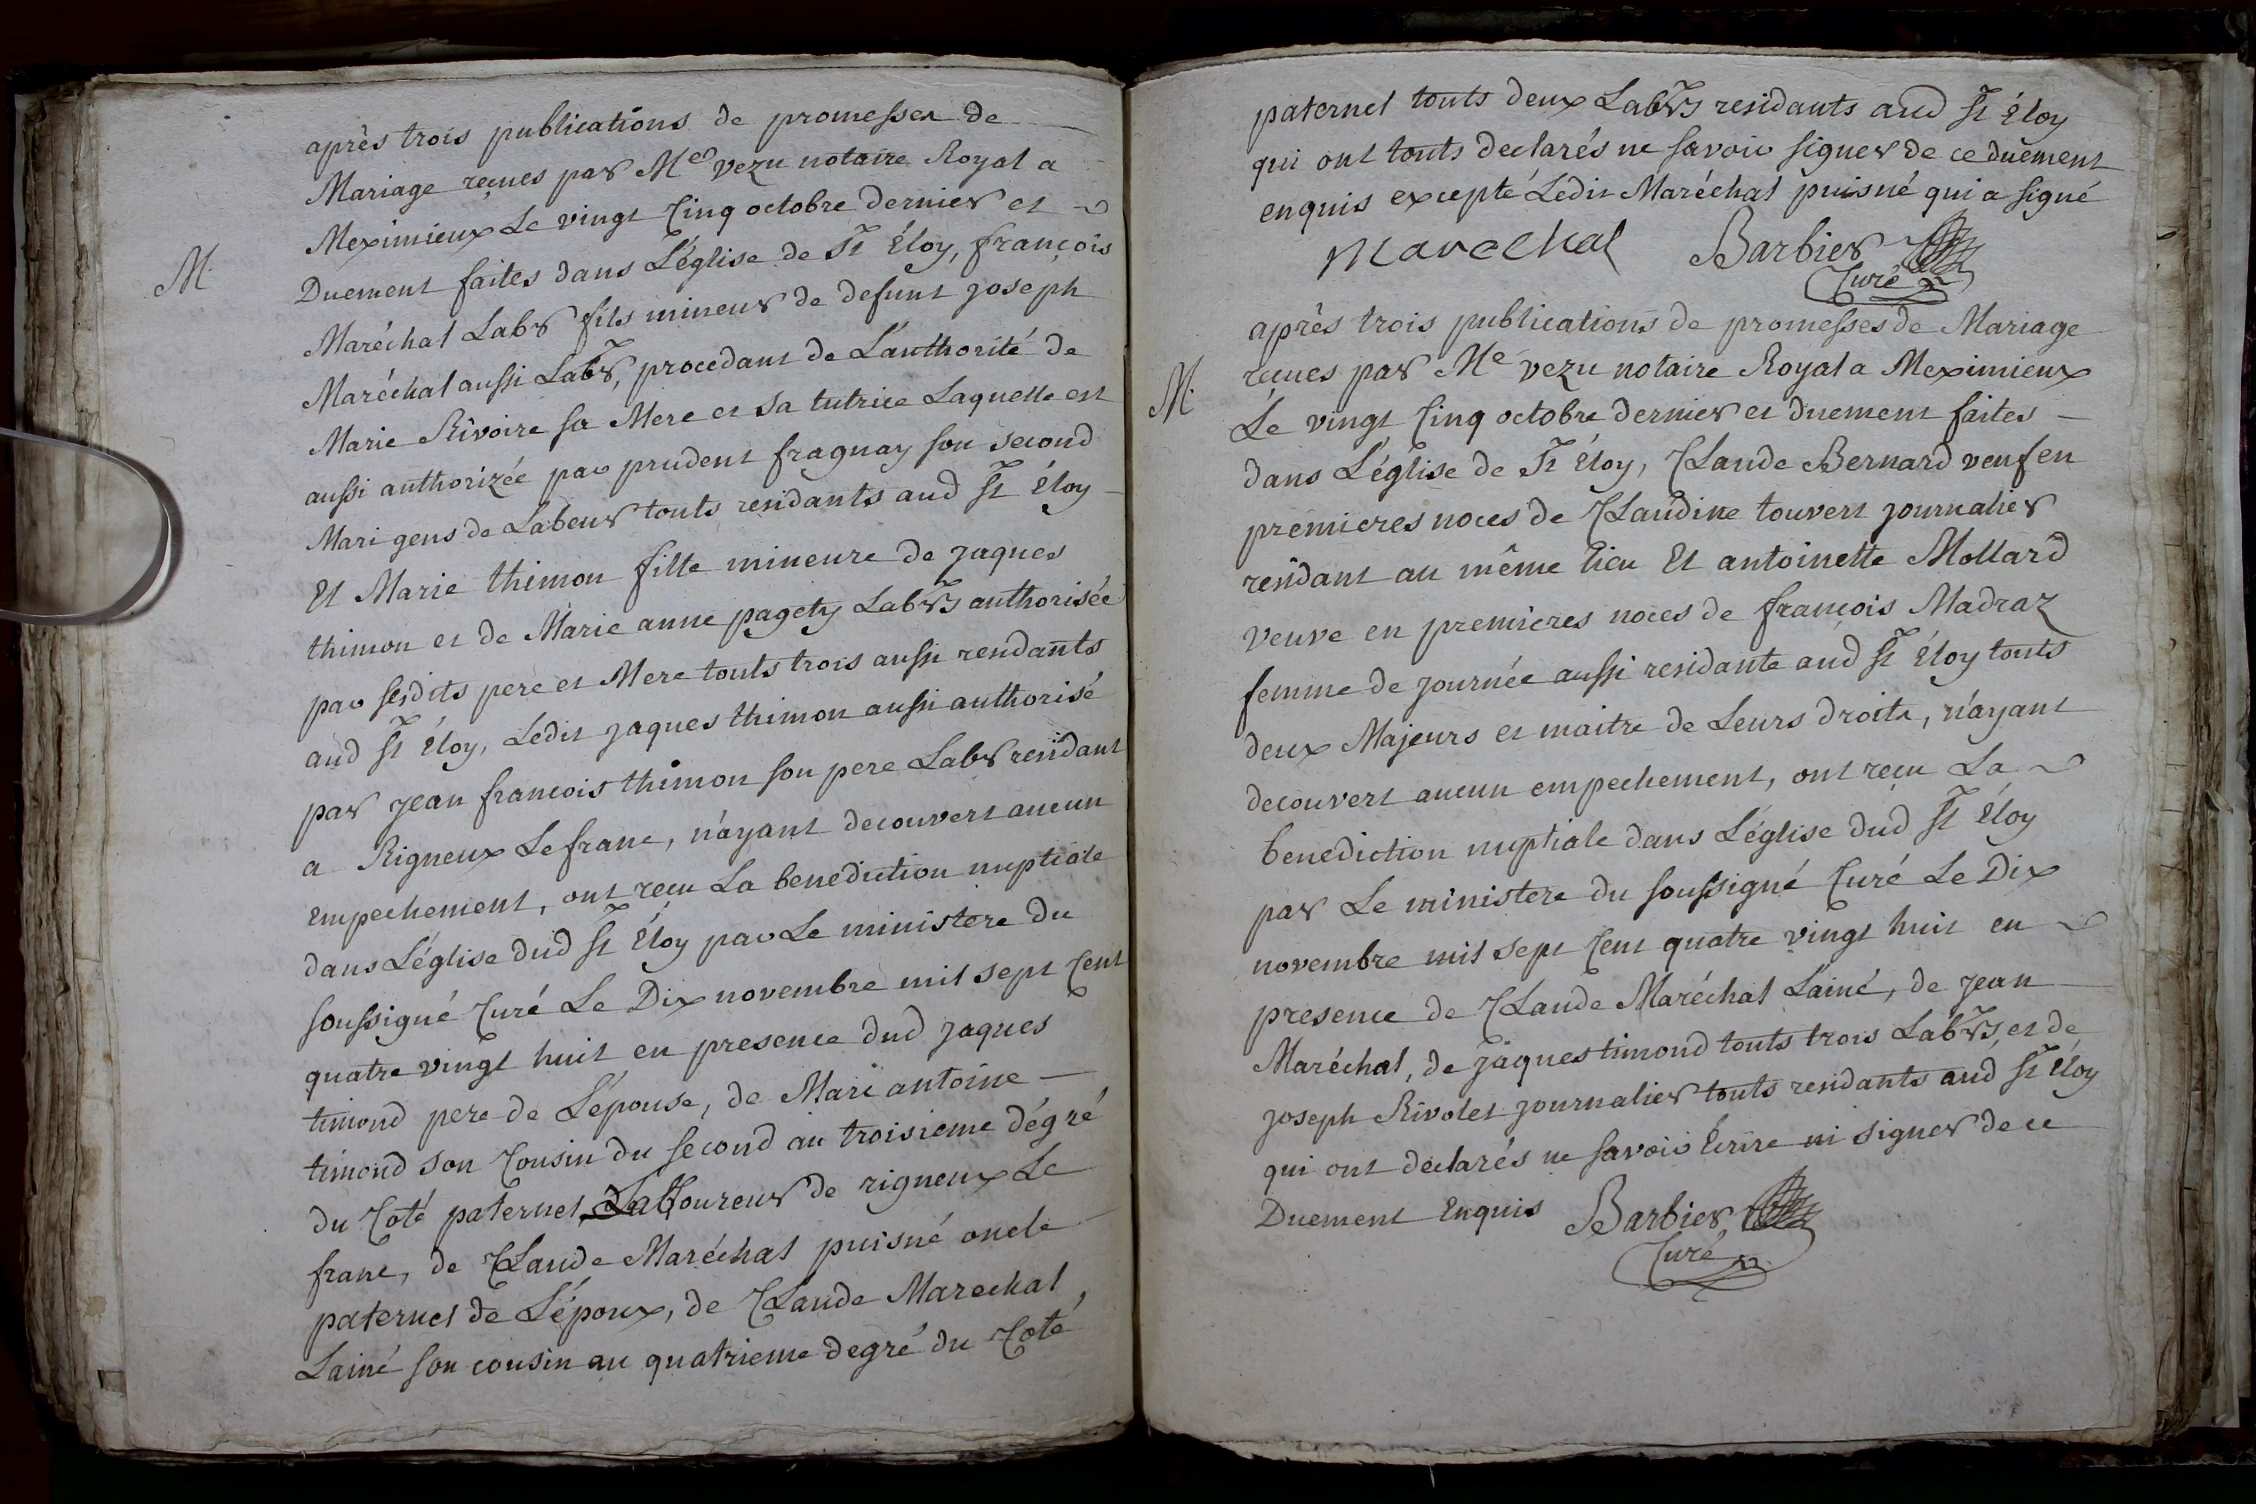 après trois publications de promesses de
Mariage reçues par Me vezu notaire Royal a
Meximieux Le vingt Cinq octobre dernier et
M.
Duement faites dans L'église de St Éloy, françois
Maréchal Labr fils mineur de defunt joseph
Maréchal aussi Labr, procedant de L'authorité de
Marie Rivoire sa Mere et sa tutrice Laquelle est
aussi authorizée par prudent fragnay son second
Mari gens de Labeur touts residants aud St Éloy
Et Marie thimon fille mineure de jaques
thimon et de Marie anne pagety Labrs authorisée
par sesdits pere et Mere touts trois aussi residants
aud St Éloy, Ledit jaques thimon aussi authorisé
par jean françois thimon son pere Labr residant
a Rigneux Le franc, n'ayant decouvert aucun
empechement, ont reçu La benediction nuptiale
dans L'église dud St Éloy par Le ministere du
soussigné Curé Le Dix novembre mil sept Cent
quatre vingt huit en presence dud jaques
timond pere de L'épouse, de Mari antoine
timond son Cousin du second au troisieme dégré
du Coté paternel, Laboureur de rigneux Le
franc, de CLaude Maréchal puisné oncle
paternel de L'époux, de CLaude Marechal
L'ainé son cousin au quatrieme degré du Coté
paternel touts deux Labrs residants aud St Éloy
qui ont touts declarés ne savoir signer de ce duement
enquis excepté Ledit Maréchal puisné qui a signé
Marechal Barbier
Curé
après trois publications de promesses de Mariage
M.
reçues par Me vezu notaire Royal a Meximieux
Le vingt Cinq octobre dernier et duement faites
dans L'église de St Éloy, CLaude Bernard veuf en
premieres noces de CLaudine touvert journalier
residant au même lieu Et antoinette Mollard
veuve en premieres noces de françois Madraz
femme de journée aussi residante aud St Éloy touts
deux Majeurs et maitre de Leurs droits, n'ayant
decouvert aucun empechement, ont reçu La
benediction nuptiale dans L'église dud St Éloy
par Le ministere du soussigné Curé Le Dix
novembre mil sept Cent quatre vingt huit en
presence de CLaude Maréchal L'ainé, de jean
Maréchal, de jaques timond touts trois Labrs, et de
joseph Rivolet journalier touts residants aud St Éloy
qui ont déclarés ne savoir Écrire ni signer de ce
Duement Enquis Barbier
Curé